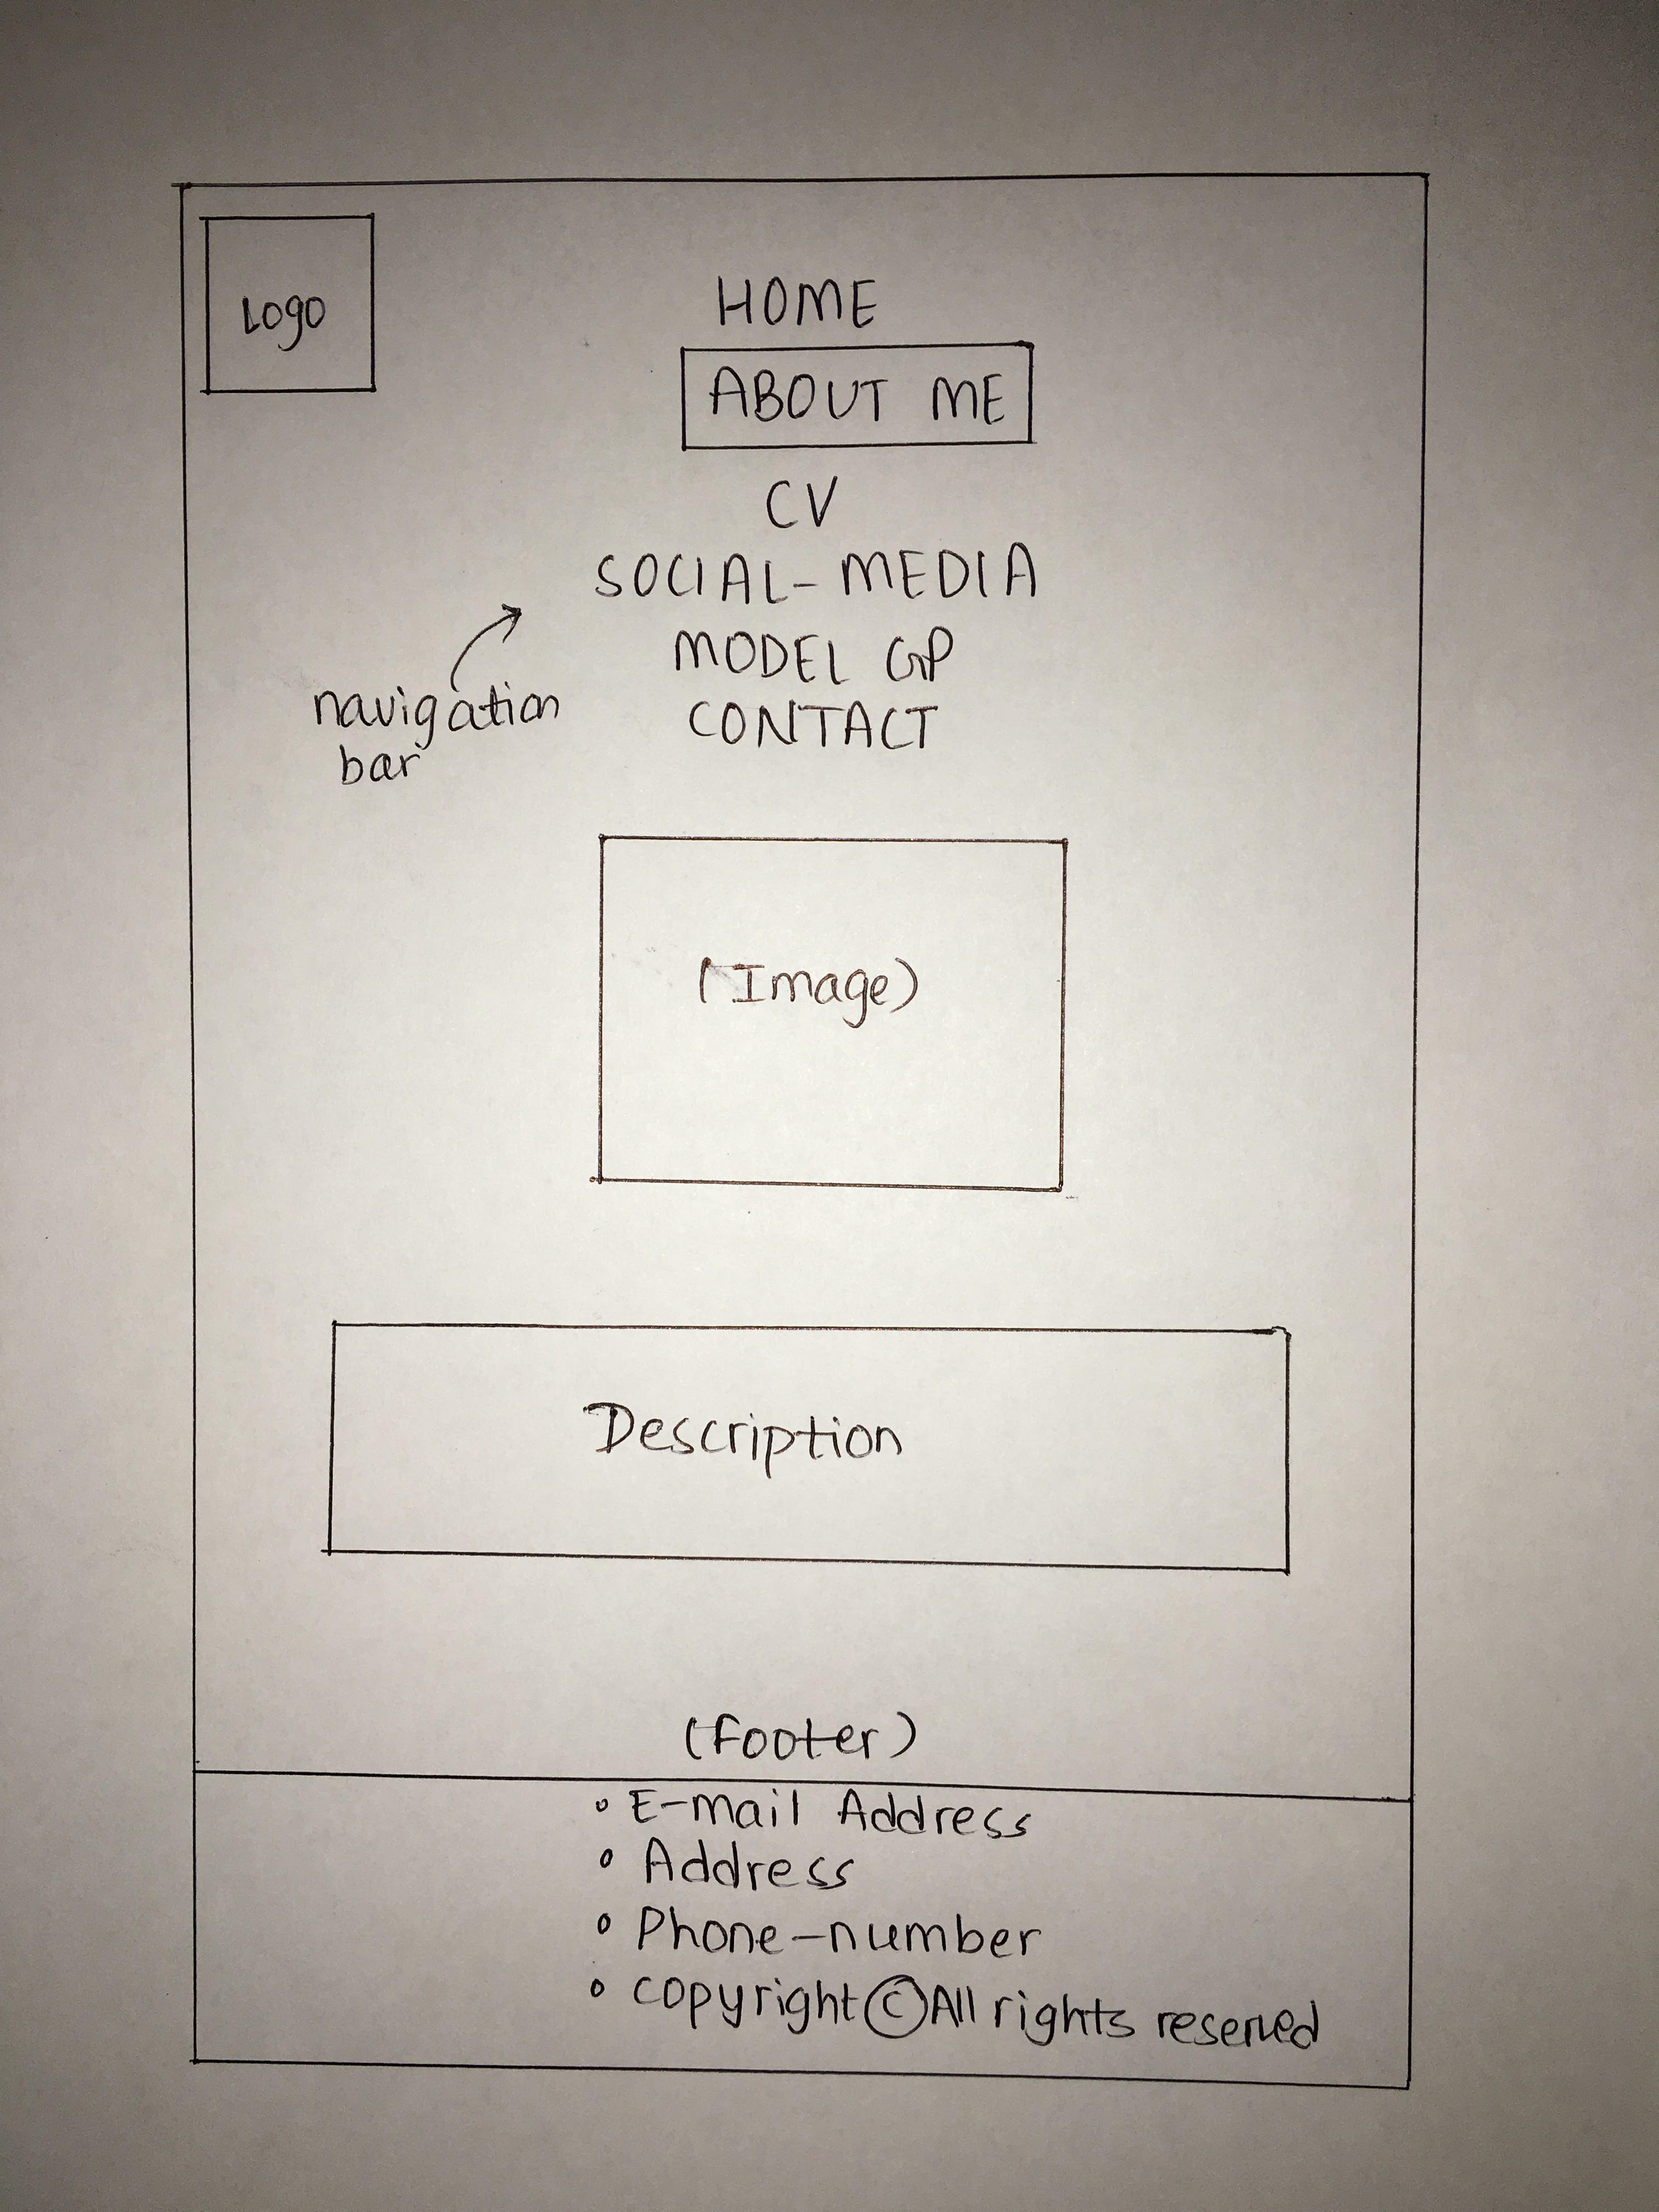 Logo
HOME
ABOUT ME
CV
SOCIAL-MEDIA
MODEL GP
CONTACT
navigation
bar
(Image)
Description
(footer)
• E-mail Address
• Address
• Phone-number
• copyright © All rights reserved